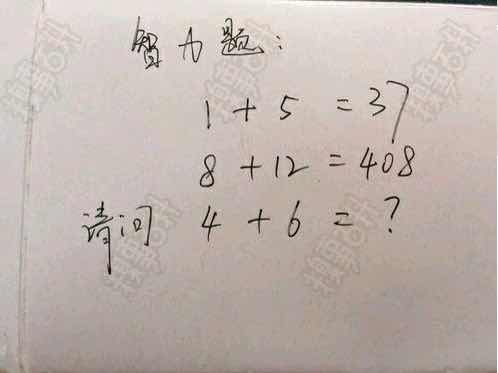 智力题:
1 + 5 = 37
8 + 12 = 408
请问 4 + 6 = ?